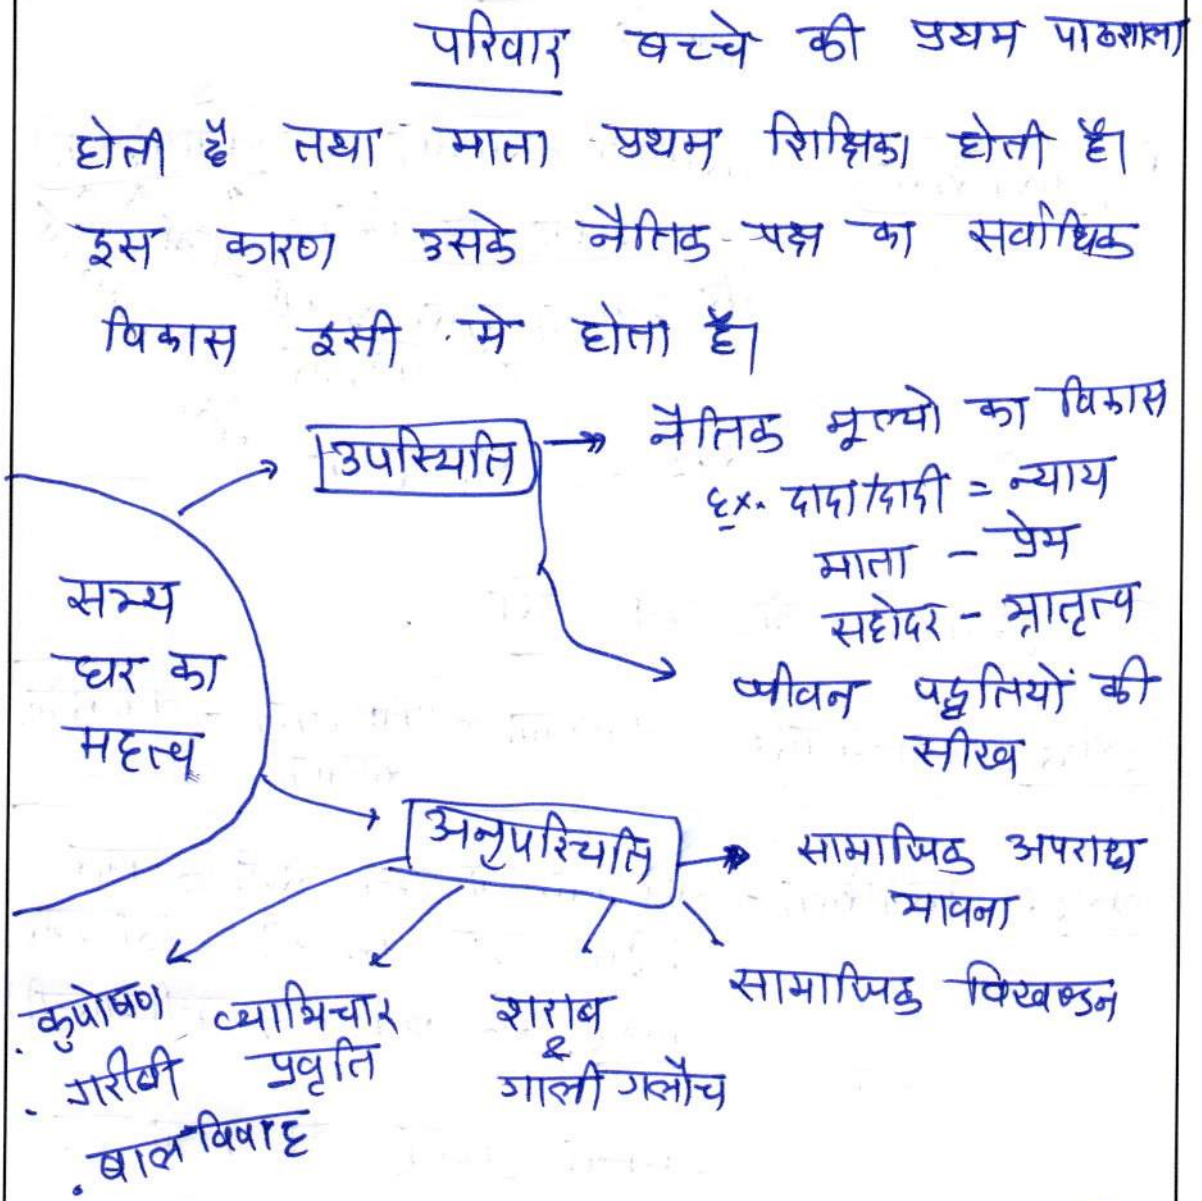 परिवार बच्चे की प्रथम पाठशाला
होती है तथा माता प्रथम शिक्षिका होती है।
इस कारण उसके नैतिक पक्ष का सर्वाधिक
विकास इसी मे होता है।
उपस्थिति
नैतिक मूल्यो का विकास
Ex. दादा/दादी = न्याय
माता - प्रेम
सहोदर - भ्रातृत्व
जीवन पद्धतियों की
सीख
सभ्य
घर का
महत्व
अनुपस्थिति
सामाजिक अपराध
भावना
सामाजिक विखण्डन
शराब
&
गाली गलौच
व्याभिचार
प्रवृति
. कुपोषण
. गरीबी
. बाल विवाह